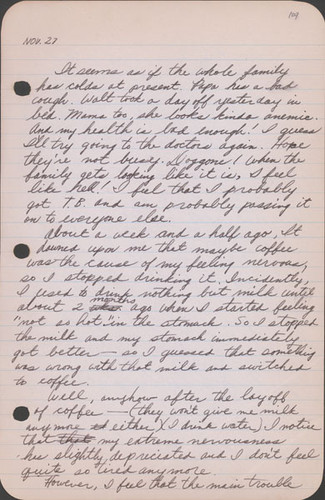 119
NOV. 27
It seems as if the whole family
has colds at present. Papa has a bad
cough. Walt took a day off yesterday in
bed. Mama too, she looks kinda anemic.
And my health is bad enough! I guess
I'll try going to the doctors again. Hope
they're not buesy. Doggone! When the
family gets looking like it is, I feel
like hell! I feel that I probably
got T.B. and am probably passing it
on to everyone else.
About a week and a half ago, It
dawned upon me that maybe coffee
was the cause of my feeling nervous,
so I stopped drinking it. Incidently,
I used to drink nothing but milk until
about 2 months ago when I started feeling
"not so hot" in the stomach. So I stopped
the milk and my stomach immediately
got better — so I guessed that something
was wrong with that milk and switched
to coffee.
Well, anyhow after the layoff
of coffee — (they won't give me milk
anymore either) (I drink water) I notice
that my extreme nervousness
has slightly depreciated and I don't feel
quite so tired anymore.
However, I feel that the main trouble